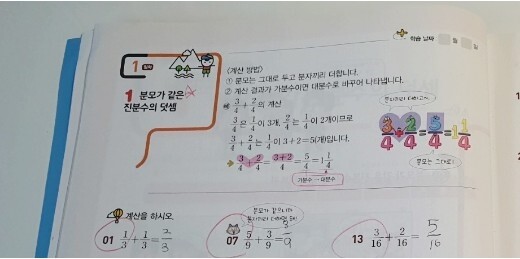 학습 날짜 월 일
1 일차
1 분모가 같은
진분수의 덧셈
<계산 방법>
① 분모는 그대로 두고 분자끼리 더합니다.
② 계산 결과가 가분수이면 대분수로 바꾸어 나타냅니다.
예 3/4 + 2/4 의 계산
3/4은 1/4이 3개, 2/4는 1/4이 2개이므로
3/4 + 2/4는 1/4이 3+2=5(개)입니다.
3/4 + 2/4 = 3+2/4 = 5/4 = 1 1/4
가분수 → 대분수
분자끼리 더하고
3/4 + 2/4 = 5/4 = 1 1/4
분모는 그대로!
계산을 하시오.
01 1/3 + 1/3 = 2/3
분모가 같으니까
07 5/9 + 3/9 = 8/9
13 3/16 + 2/16 = 5/16